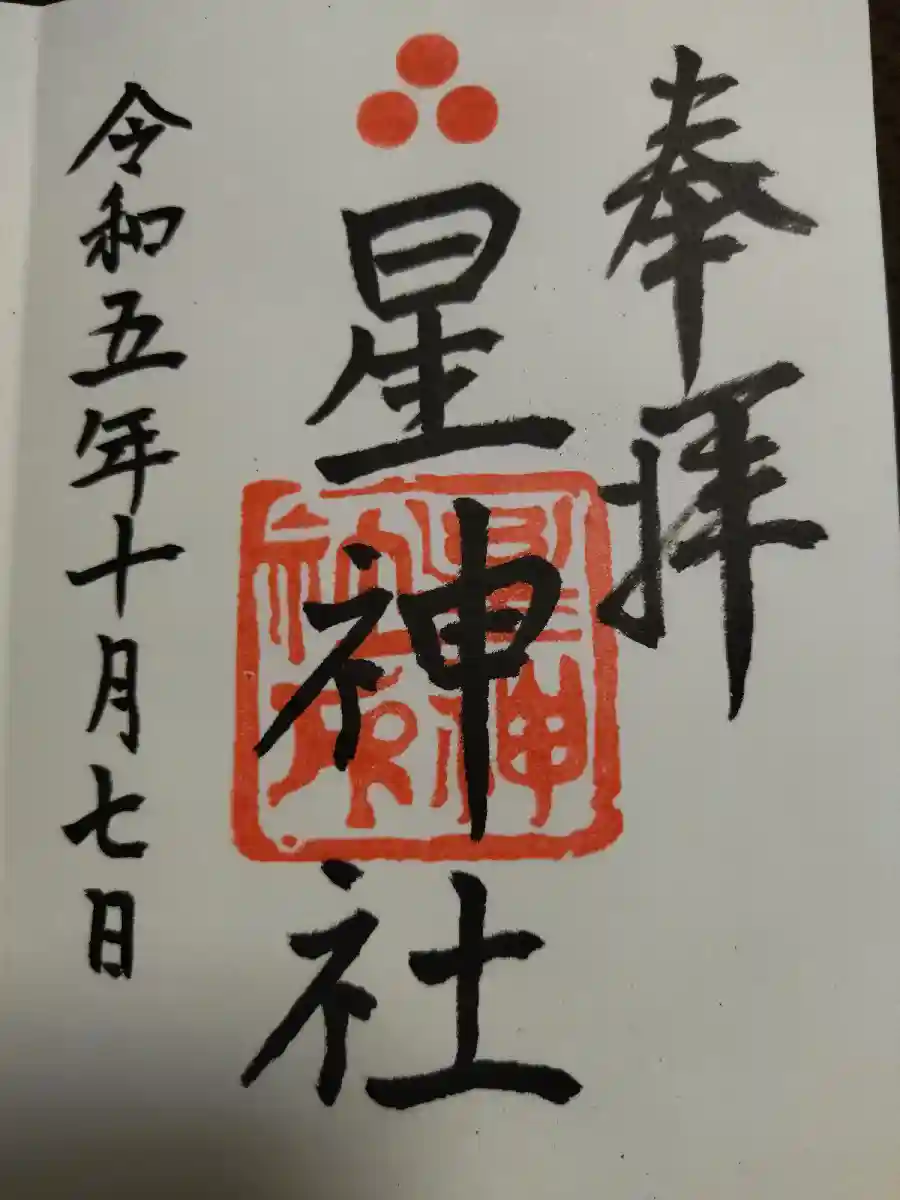 奉拝
星神社
星神社印
令和五年十月七日